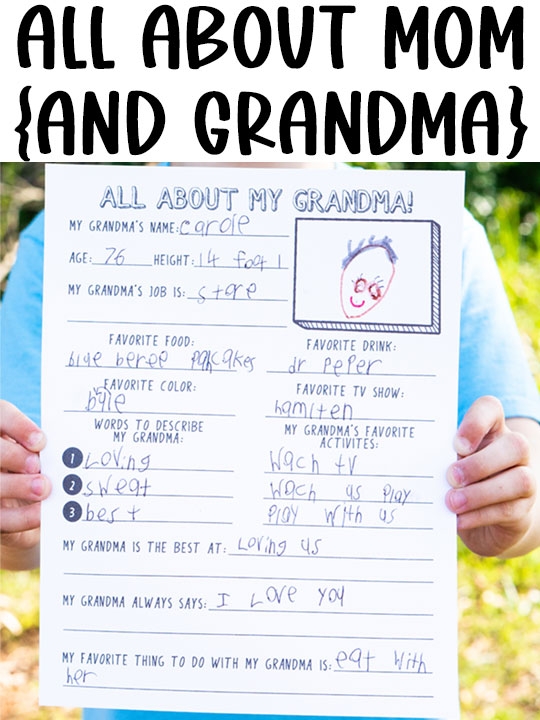 ALL ABOUT MOM
{AND GRANDMA}
ALL ABOUT MY GRANDMA!
MY GRANDMA'S NAME: carole
AGE: 76 HEIGHT: 14 foot 1
MY GRANDMA'S JOB IS: store
FAVORITE FOOD:
blye beree pancakes
FAVORITE DRINK:
dr PePer
FAVORITE COLOR:
FAVORITE TV SHOW:
hamilten
WORDS TO DESCRIBE
MY GRANDMA:
1 Loving
2 sweat
3 best
MY GRANDMA'S FAVORITE
ACTIVITES:
Wach tv
Wach us Play
Play With us
MY GRANDMA IS THE BEST AT: Loving us
MY GRANDMA ALWAYS SAYS: I Love you
MY FAVORITE THING TO DO WITH MY GRANDMA IS: eat With
her